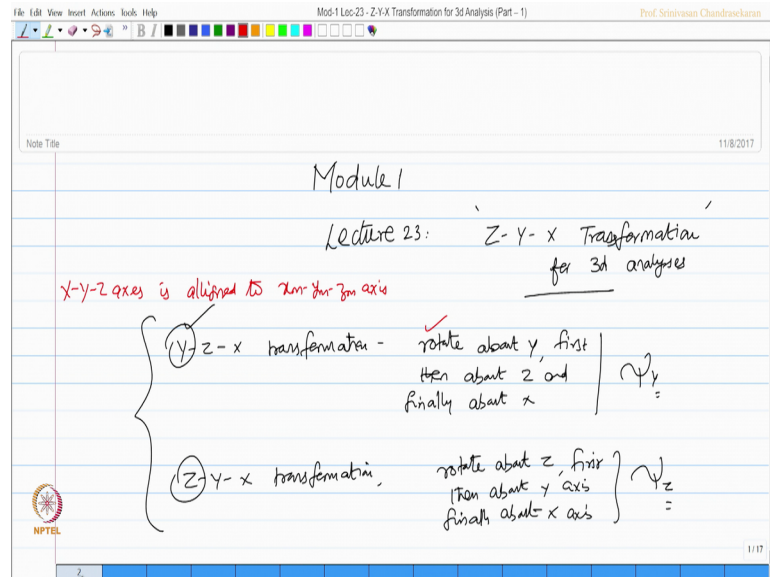 File Edit View Insert Actions Tools Help
Mod-1 Lec-23 - Z-Y-X Transformation for 3d Analysis (Part – 1)
Prof. Srinivasan Chandrasekaran
B I
Note Title
11/8/2017
Module 1
Lecture 23: 'Z-Y-X Transformation'
for 3d analyses
X-Y-Z axes is alligned to xm-ym-zm axis
Y-Z-X transformation - rotate about Y, first
then about Z and
finally about X
Ψy
Z-Y-X transformation, rotate about Z, first
then about Y axis
finally about X axis
Ψz
NPTEL
1/17
2